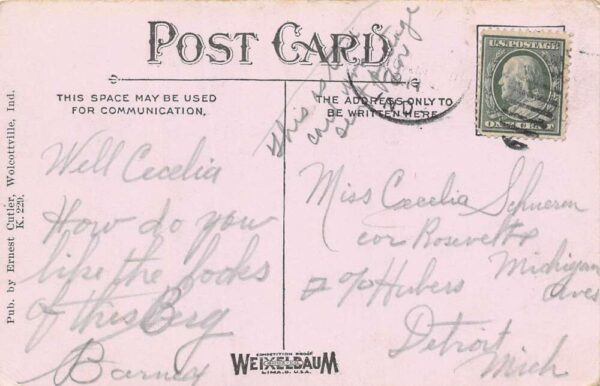 POST CARD
THIS SPACE MAY BE USED
FOR COMMUNICATION.
THE ADDRESS ONLY TO
BE WRITTEN HERE
This is the
card
Well Cecelia
How do you
like the looks
of this Berg
Barnes
Miss Cecelia
cor Rosevelt &
Michigan
Aves
c/o Hubers
Detroit
Mich
U.S. POSTAGE
Pub. by Ernest Cutler, Wolcottville, Ind.
K. 229.
COMPETITION PROOF
WEIXELBAUM
LIMA, O. U.S.A.